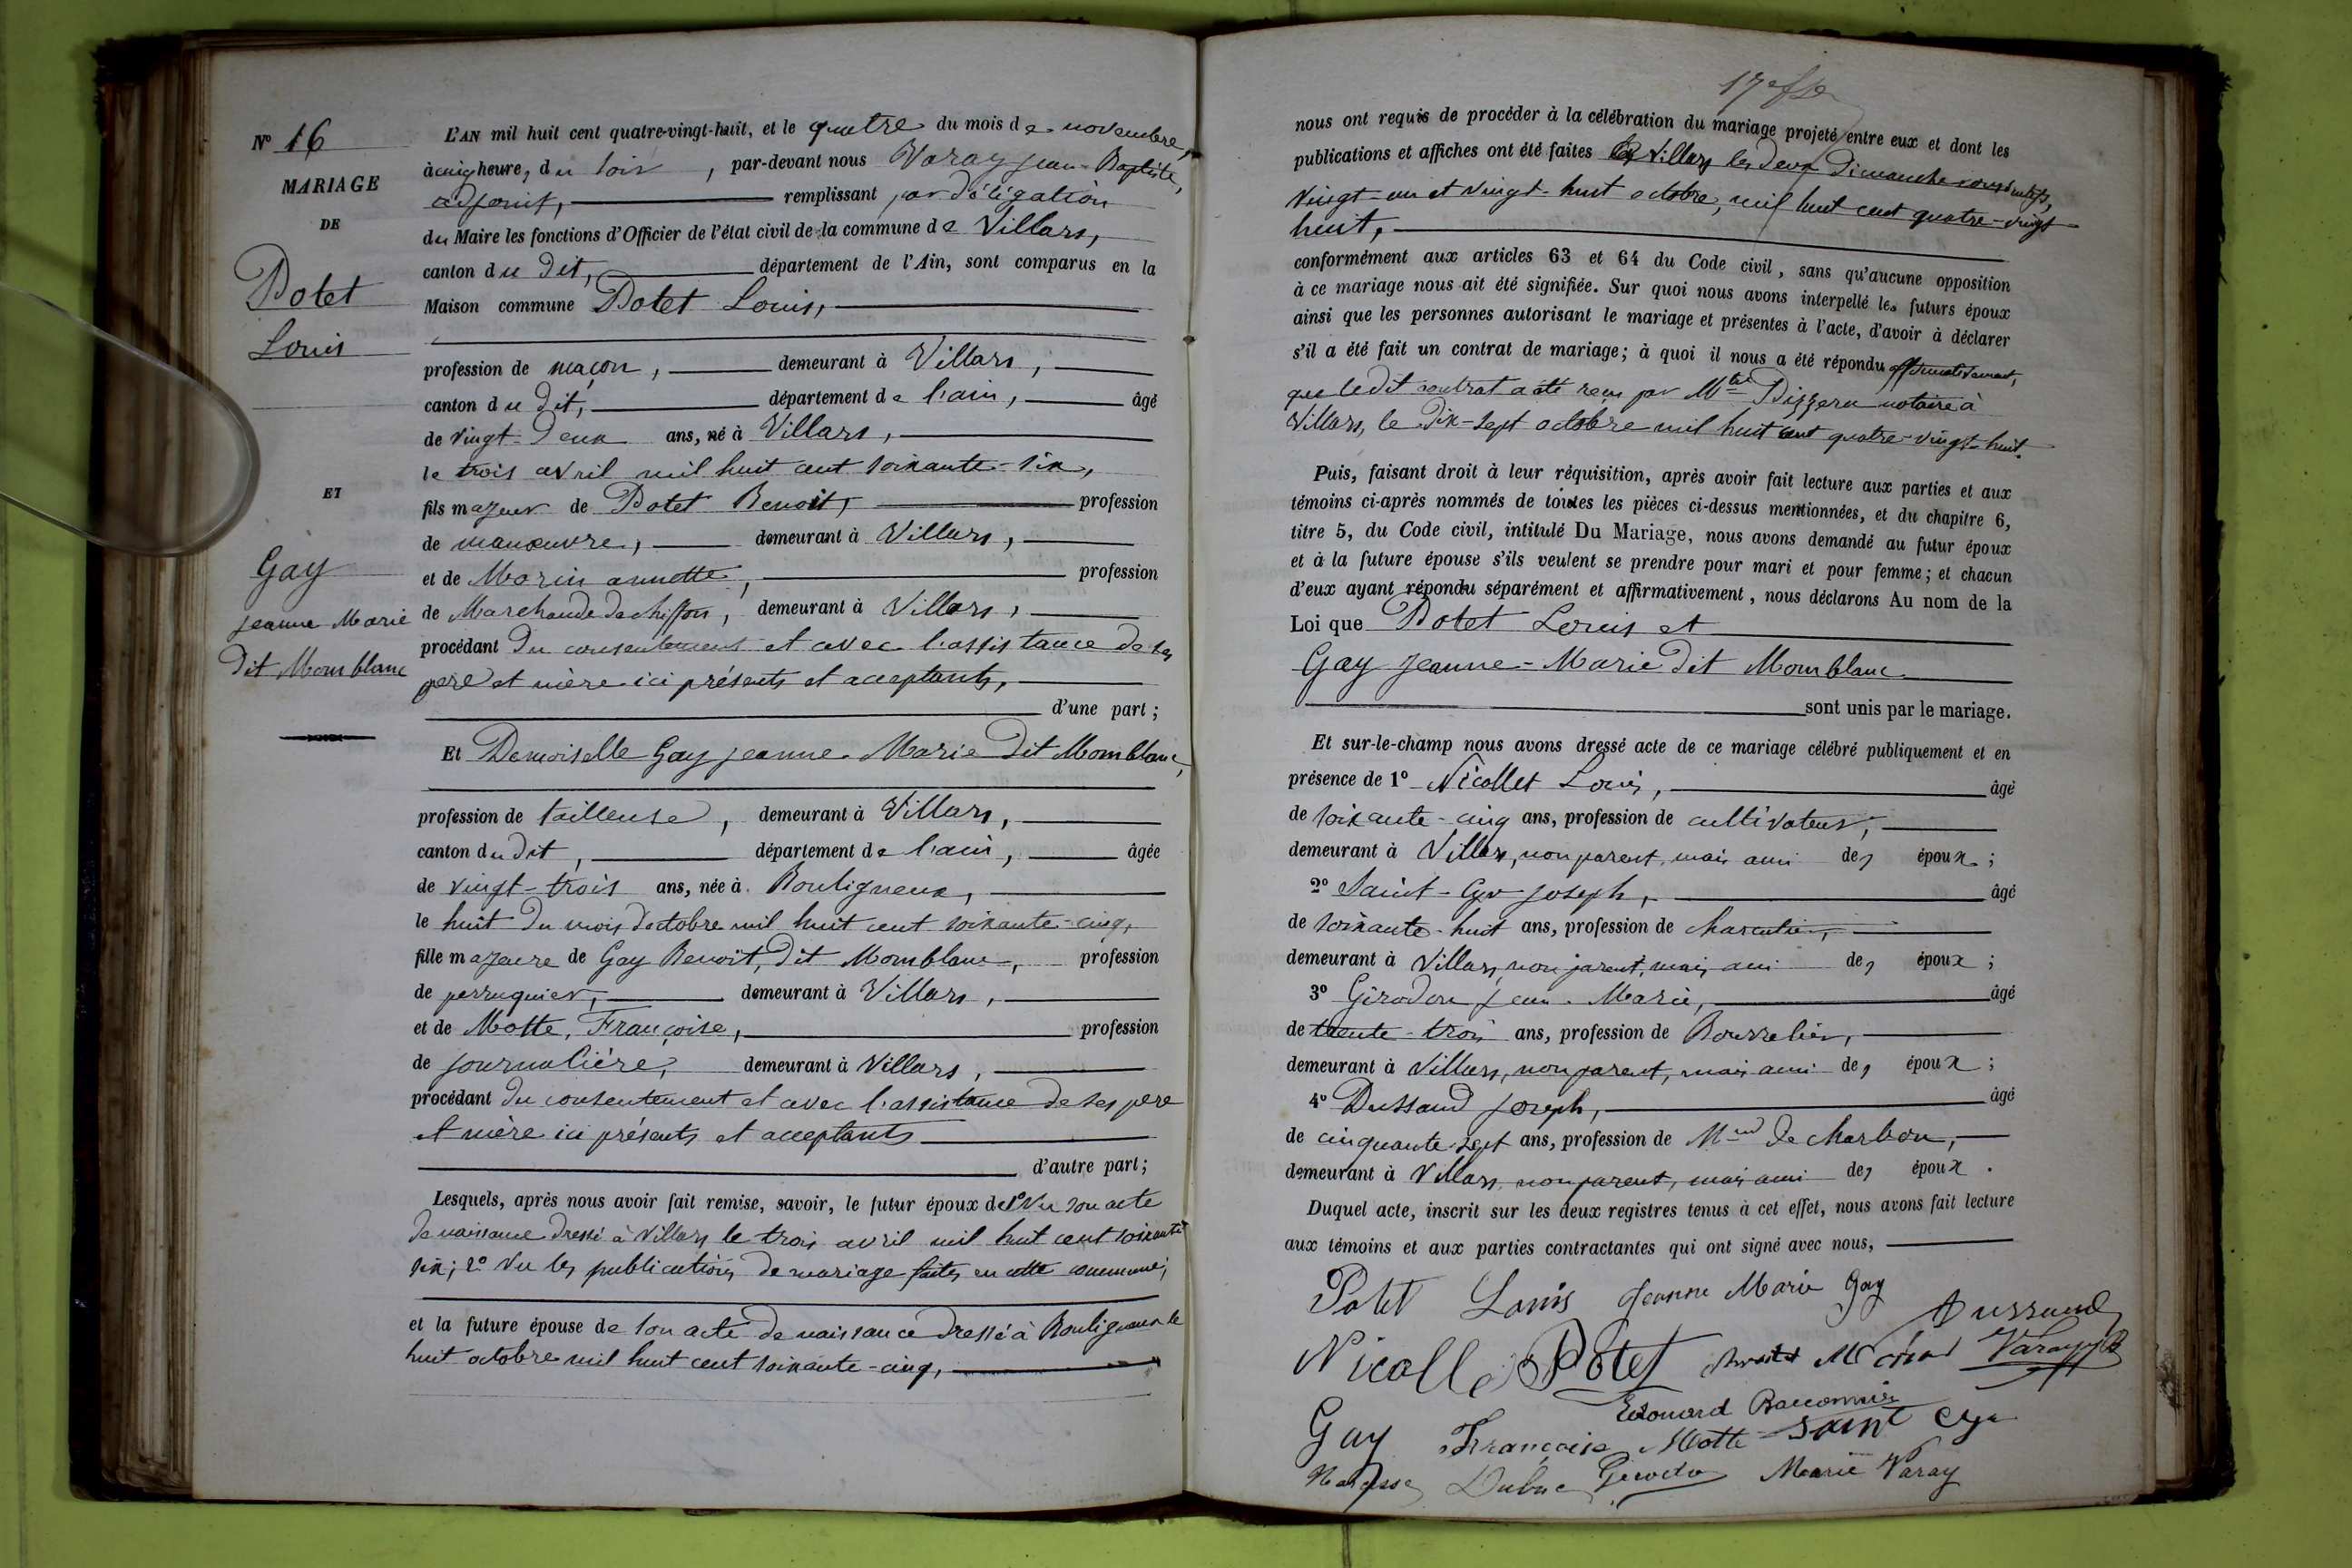 N° 16
MARIAGE
DE
Potet
Louis
ET
Gay
Jeanne Marie
dit Momblanc
L'AN mil huit cent quatre-vingt-huit, et le quatre du mois de novembre,
à cinq heures du soir, par-devant nous Varay Jean-Baptiste,
adjoint, remplissant par délégation
du Maire les fonctions d'Officier de l'état civil de la commune de Villars,
canton du dit, département de l'Ain, sont comparus en la
Maison commune Potet Louis,
profession de maçon, demeurant à Villars,
canton du dit, département de l'ain, âgé
de vingt-deux ans, né à Villars,
le trois avril mil huit cent soixante-six,
fils majeur de Potet Benoit, profession
de manœuvre, demeurant à Villars,
et de Morin annette, profession
de Marchande de chiffons, demeurant à Villars,
procédant du consentement et avec l'assistance de ses
père et mère ici présents et acceptants,
d'une part;
Et Demoiselle Gay Jeanne-Marie dit Momblanc,
profession de tailleuse, demeurant à Villars,
canton du dit, département de l'ain, âgée
de vingt-trois ans, née à Bouligneux,
le huit du mois d'octobre mil huit cent soixante-cinq,
fille majeure de Gay Benoît, dit Momblanc, profession
de perruquier, demeurant à Villars,
et de Motte, Françoise, profession
de journalière, demeurant à Villars,
procédant du consentement et avec l'assistance de ses père
et mère ici présents et acceptants
d'autre part;
Lesquels, après nous avoir fait remise, savoir, le futur époux de 1° Vu son acte
de naissance dressé à Villars le trois avril mil huit cent soixante
six; 2° Vu les publications de mariage faites en cette commune;
et la future épouse de son acte de naissance dressé à Bouligneux le
huit octobre mil huit cent soixante-cinq,
nous ont requis de procéder à la célébration du mariage projeté entre eux et dont les
publications et affiches ont été faites à Villars les deux Dimanche consécutifs,
vingt-un et vingt-huit octobre, mil huit cent quatre-vingt
huit,
conformément aux articles 63 et 64 du Code civil, sans qu'aucune opposition
à ce mariage nous ait été signifiée. Sur quoi nous avons interpellé les futurs époux
ainsi que les personnes autorisant le mariage et présentes à l'acte, d'avoir à déclarer
s'il a été fait un contrat de mariage; à quoi il nous a été répondu affirmativement,
que ledit contrat a été reçu par Mtre Dizzeru notaire à
Villars, le dix-sept octobre mil huit cent quatre-vingt-huit.
Puis, faisant droit à leur réquisition, après avoir fait lecture aux parties et aux
témoins ci-après nommés de toutes les pièces ci-dessus mentionnées, et du chapitre 6,
titre 5, du Code civil, intitulé Du Mariage, nous avons demandé au futur époux
et à la future épouse s'ils veulent se prendre pour mari et pour femme; et chacun
d'eux ayant répondu séparément et affirmativement, nous déclarons Au nom de la
Loi que Potet Louis et
Gay Jeanne-Marie dit Momblanc
sont unis par le mariage.
Et sur-le-champ nous avons dressé acte de ce mariage célébré publiquement et en
présence de 1° Nicollet Louis, âgé
de soixante-cinq ans, profession de cultivateur,
demeurant à Villars, non parent, mais ami des époux;
2° Saint-Cyr Joseph, âgé
de soixante-huit ans, profession de charcutier,
demeurant à Villars, non parent, mais ami des époux;
3° Girodon Jean-Marie, âgé
de trente-trois ans, profession de Bourrelier,
demeurant à Villars, non parent, mais ami des époux;
4° Dussaud Joseph, âgé
de cinquante-sept ans, profession de Mand de charbon,
demeurant à Villars non parent, mais ami des époux.
Duquel acte, inscrit sur les deux registres tenus à cet effet, nous avons fait lecture
aux témoins et aux parties contractantes qui ont signé avec nous,
Potet Louis Jeanne Marie Gay
Dussaud
Nicolle Potet Varay JB
Edouard Baconnier
Gay Françoise Motte Saint Cyr
Dubuc Girodon Marie Varay